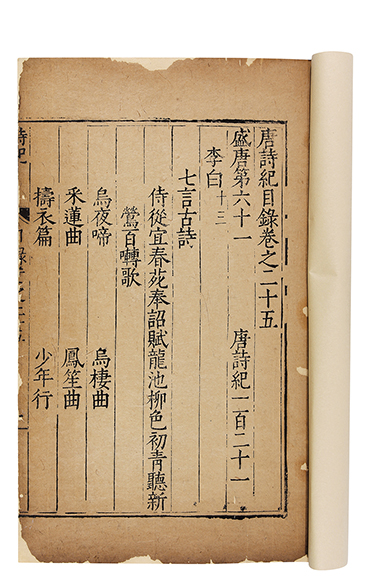 唐詩紀目錄卷之二十五
盛唐第六十一 唐詩紀一百二十一
李白 十三
七言古詩
侍從宜春苑奉詔賦龍池柳色初青聽新
鶯百囀歌
烏夜啼 烏棲曲
釆蓮曲 鳳笙曲
擣衣篇 少年行